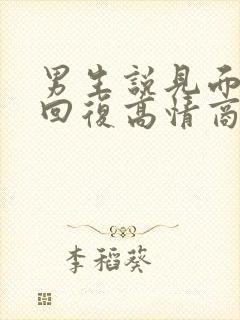 男生說見而
回復高情商
李稻葵